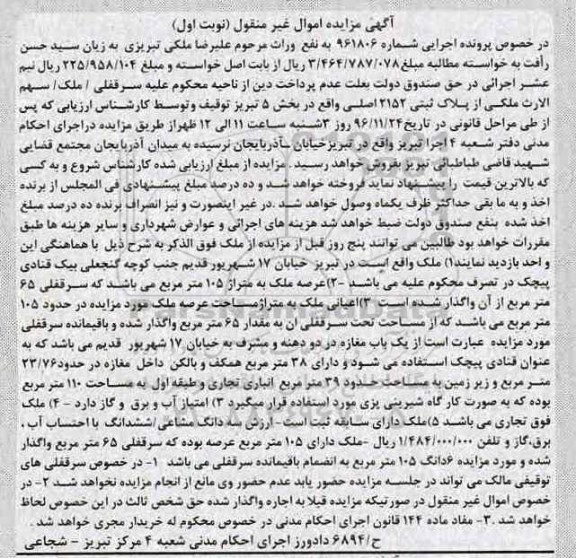 آگهی مزایده اموال غیر منقول (نوبت اول)
در خصوص پرونده اجرایی شماره ۹۶۱۸۰۶ به نفع وراث مرحوم علیرضا ملکی تبریزی به زیان سید حسن
رأفت به خواسته مطالبه مبلغ ۳/۴۶۴/۷۸۷/۰۷۸ ریال از بابت اصل خواسته و مبلغ ۲۲۵/۹۵۸/۱۰۴ ریال نیم
عشر اجرائی در حق صندوق دولت بعلت عدم پرداخت دین از ناحیه محکوم علیه سرقفلی / ملک/ سهم
الارث ملکی از پلاک ثبتی ۲۱۵۲ اصلی واقع در بخش ۵ تبریز توقیف وتوسط کارشناس ارزیابی که پس
از طی مراحل قانونی در تاریخ۹۶/۱۱/۲۴ روز ۳شنبه ساعت ۱۱ الی ۱۲ ظهراز طریق مزایده دراجرای احکام
مدنی دفتر شعبه ۴ اجرا تبریز واقع در تبریزخیابان آذربایجان نرسیده به میدان آذربایجان مجتمع قضایی
شهید قاضی طباطبائی تبریز بفروش خواهد رسید . مزایده از مبلغ ارزیابی شده کارشناس شروع و به کسی
که بالاترین قیمت را پیشنهاد نماید فروخته خواهد شد و ده درصد مبلغ پیشنهادی فی المجلس از برنده
اخذ و به ما بقی حداکثر ظرف یکماه وصول خواهد شد .در غیر اینصورت و نیز انصراف برنده ده درصد مبلغ
اخذ شده بنفع صندوق دولت ضبط خواهد شد هزینه های اجرائی و عوارض شهرداری و سایر هزینه ها طبق
مقررات خواهد بود طالبین می توانند پنج روز قبل از مزایده از ملک فوق الذکر به شرح ذیل با هماهنگی این
و احد بازدید نمایند۱) ملک واقع است در تبریز خیابان ۱۷ شهریور قدیم جنب کوچه گنجعلی بیک قنادی
پیچک در تصرف محکوم علیه می باشد -۲)عرصه ملک به متراژ ۱۰۵ متر مربع می باشد که سرقفلی ۶۵
متر مربع از آن واگذار شده است ۳)اعیانی ملک به متراژمساحت عرصه ملک مورد مزایده در حدود ۱۰۵
متر مربع می باشد که از مساحت تحت سرقفلی ان به مقدار ۶۵ متر مربع واگذار شده و باقیمانده سرقفلی
مورد مزایده عبارت است از یک باب مغازه در دو دهنه و مشرف به خیابان ۱۷ شهریور قدیم می باشد که به
عنوان قنادی پیچک استفاده می شود و دارای ۳۸ متر مربع همکف و بالکن داخل مغازه در حدود۲۳/۷۶
متر مربع و زیر زمین به مساحت حدود ۳۹ متر مربع انباری تجاری و طبقه اول به مساحت ۱۱۰ متر مربع
بوده که به صورت کار گاه شیرینی پزی مورد استفاده قرار میگیرد ۳) امتیاز آب و برق و گاز دارد - ۴) ملک
فوق تجاری می باشد ۵)ملک دارای سابقه ثبت است - ارزش سه دانگ مشاعی /ششدانگ با احتساب آب ،
برق،گاز و تلفن ۱/۴۸۴/۰۰۰/۰۰۰ ریال -ملک دارای ۱۰۵ متر مربع عرصه بوده که سرقفلی ۶۵ متر مربع واگذار
شده و مورد مزایده ۶دانگ ۱۰۵ متر مربع به انضمام باقیمانده سرقفلی می باشد ۱- در خصوص سرقفلی های
توقیفی مالک می تواند در جلسه مزایده حضور یابد عدم حضور وی مانع از انجام مزایده نخواهد شد ۲- در
خصوص اموال غیر منقول در صورتیکه مزایده قبلا به اجاره واگذار شده حق شخص ثالث در این خصوص لحاظ
خواهد شد .۳- مفاد ماده ۱۴۴ قانون اجرای احکام مدنی در خصوص محکوم له خریدار مجری خواهد شد .
ح/۶۸۹۴ دادورز اجرای احکام مدنی شعبه ۴ مرکز تبریز - شجاعی